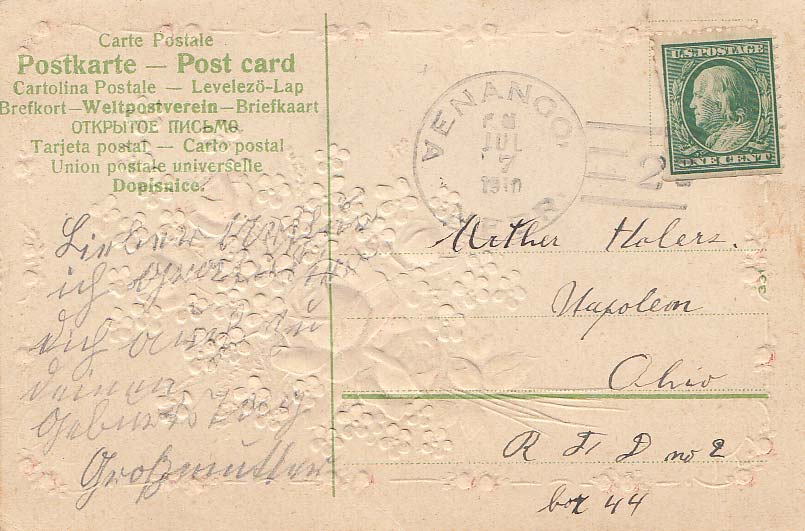 Carte Postale
Postkarte — Post card
Cartolina Postale — Levelező-Lap
Brefkort—Weltpostverein—Briefkaart
ОТКРЫТОЕ ПИСЬМО
Tarjeta postal — Carto postal
Union postale universelle
Dopisnice.
U.S. POSTAGE
ONE CENT
VENANGO,
JUL
7
1910
NEBR.
2
Lieber
ich
dich auch zu
deinen
Geburtstag
Großmutter
Holers.
Napoleon
Ohio
R F D no 2
box 44
331